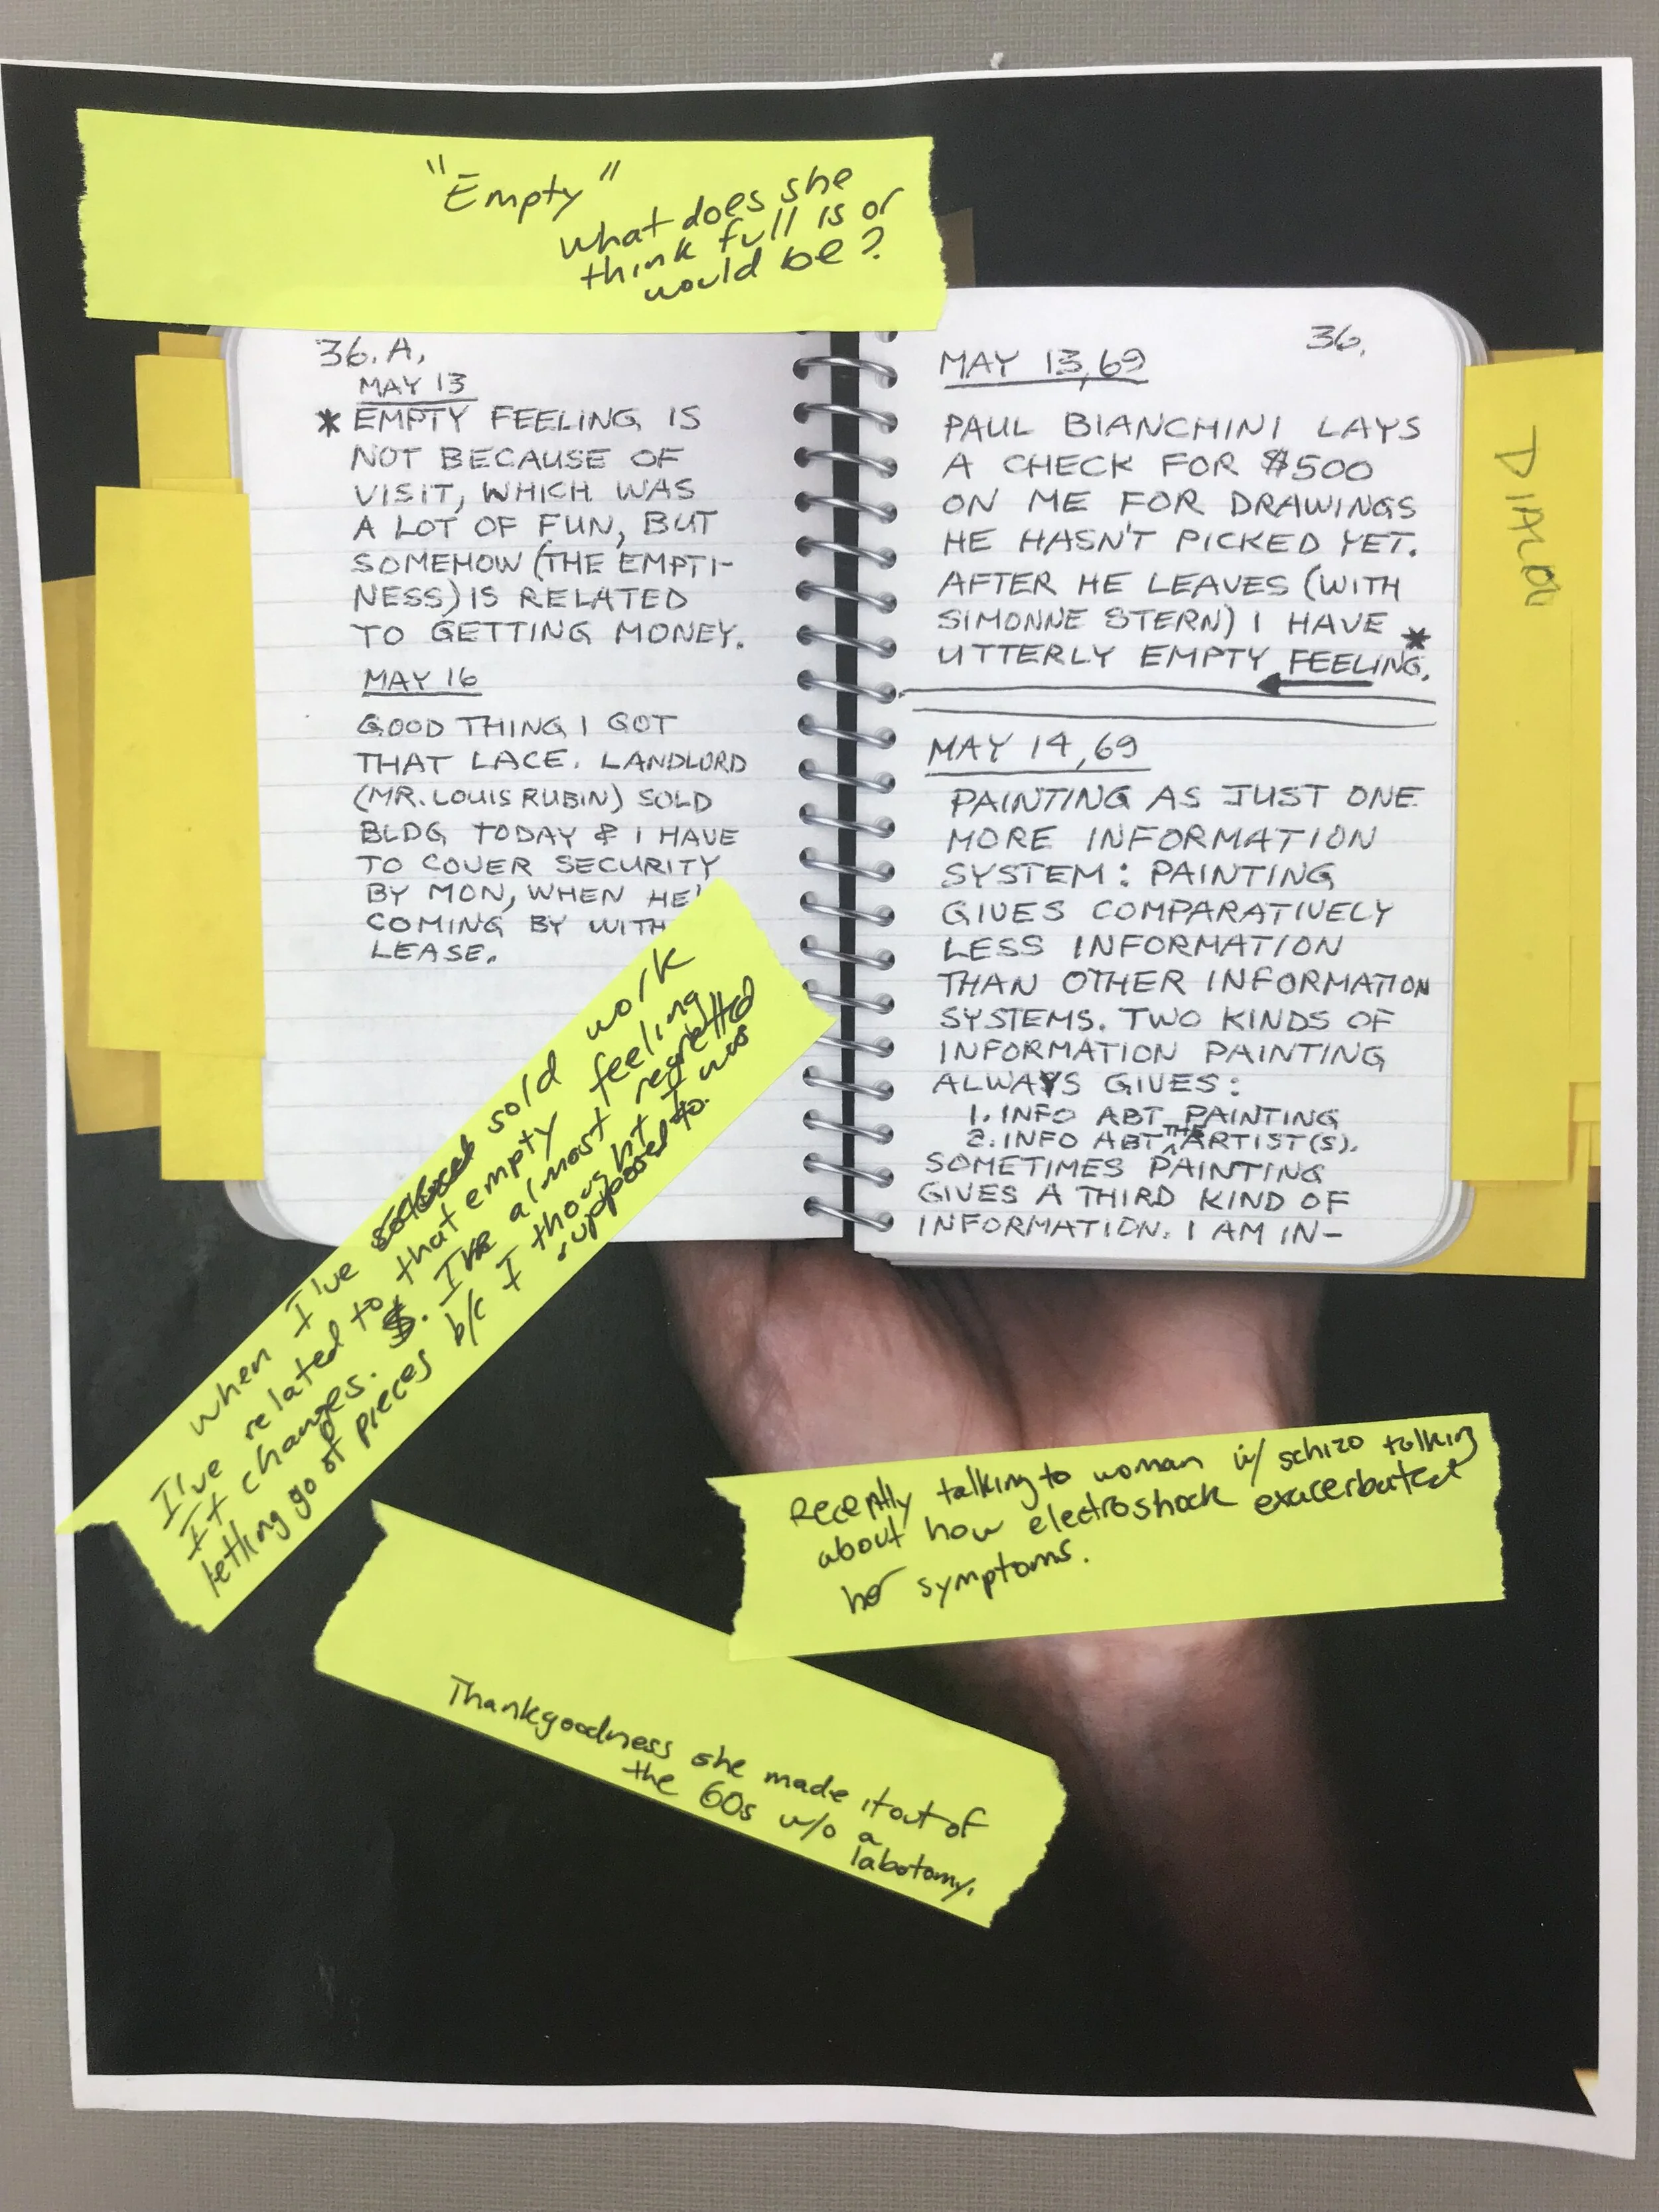 "Empty"
what does she
think full is or
would be?
36.A.
MAY 13
* EMPTY FEELING IS
NOT BECAUSE OF
VISIT, WHICH WAS
A LOT OF FUN, BUT
SOMEHOW (THE EMPTI-
NESS) IS RELATED
TO GETTING MONEY.
MAY 16
GOOD THING I GOT
THAT LACE. LANDLORD
(MR. LOUIS RUBIN) SOLD
BLDG TODAY & I HAVE
TO COVER SECURITY
BY MON, WHEN HE'
COMING BY WITH
LEASE.
36.
MAY 13, 69
PAUL BIANCHINI LAYS
A CHECK FOR $500
ON ME FOR DRAWINGS
HE HASN'T PICKED YET.
AFTER HE LEAVES (WITH
SIMONNE STERN) I HAVE
UTTERLY EMPTY FEELING. *
MAY 14, 69
PAINTING AS JUST ONE
MORE INFORMATION
SYSTEM: PAINTING
GIVES COMPARATIVELY
LESS INFORMATION
THAN OTHER INFORMATION
SYSTEMS. TWO KINDS OF
INFORMATION PAINTING
ALWAYS GIVES:
1. INFO ABT PAINTING
2. INFO ABT THE ARTIST(S).
SOMETIMES PAINTING
GIVES A THIRD KIND OF
INFORMATION. I AM IN-
when I've sold work
I've related to that empty feeling
It changes. $. I've almost regretted
letting go of pieces b/c I thought I was
supposed to.
Recently talking to woman w/ schizo talking
about how electroshock exacerbated
her symptoms.
Thankgoodness she made it out of
the 60s w/o a
labotomy.